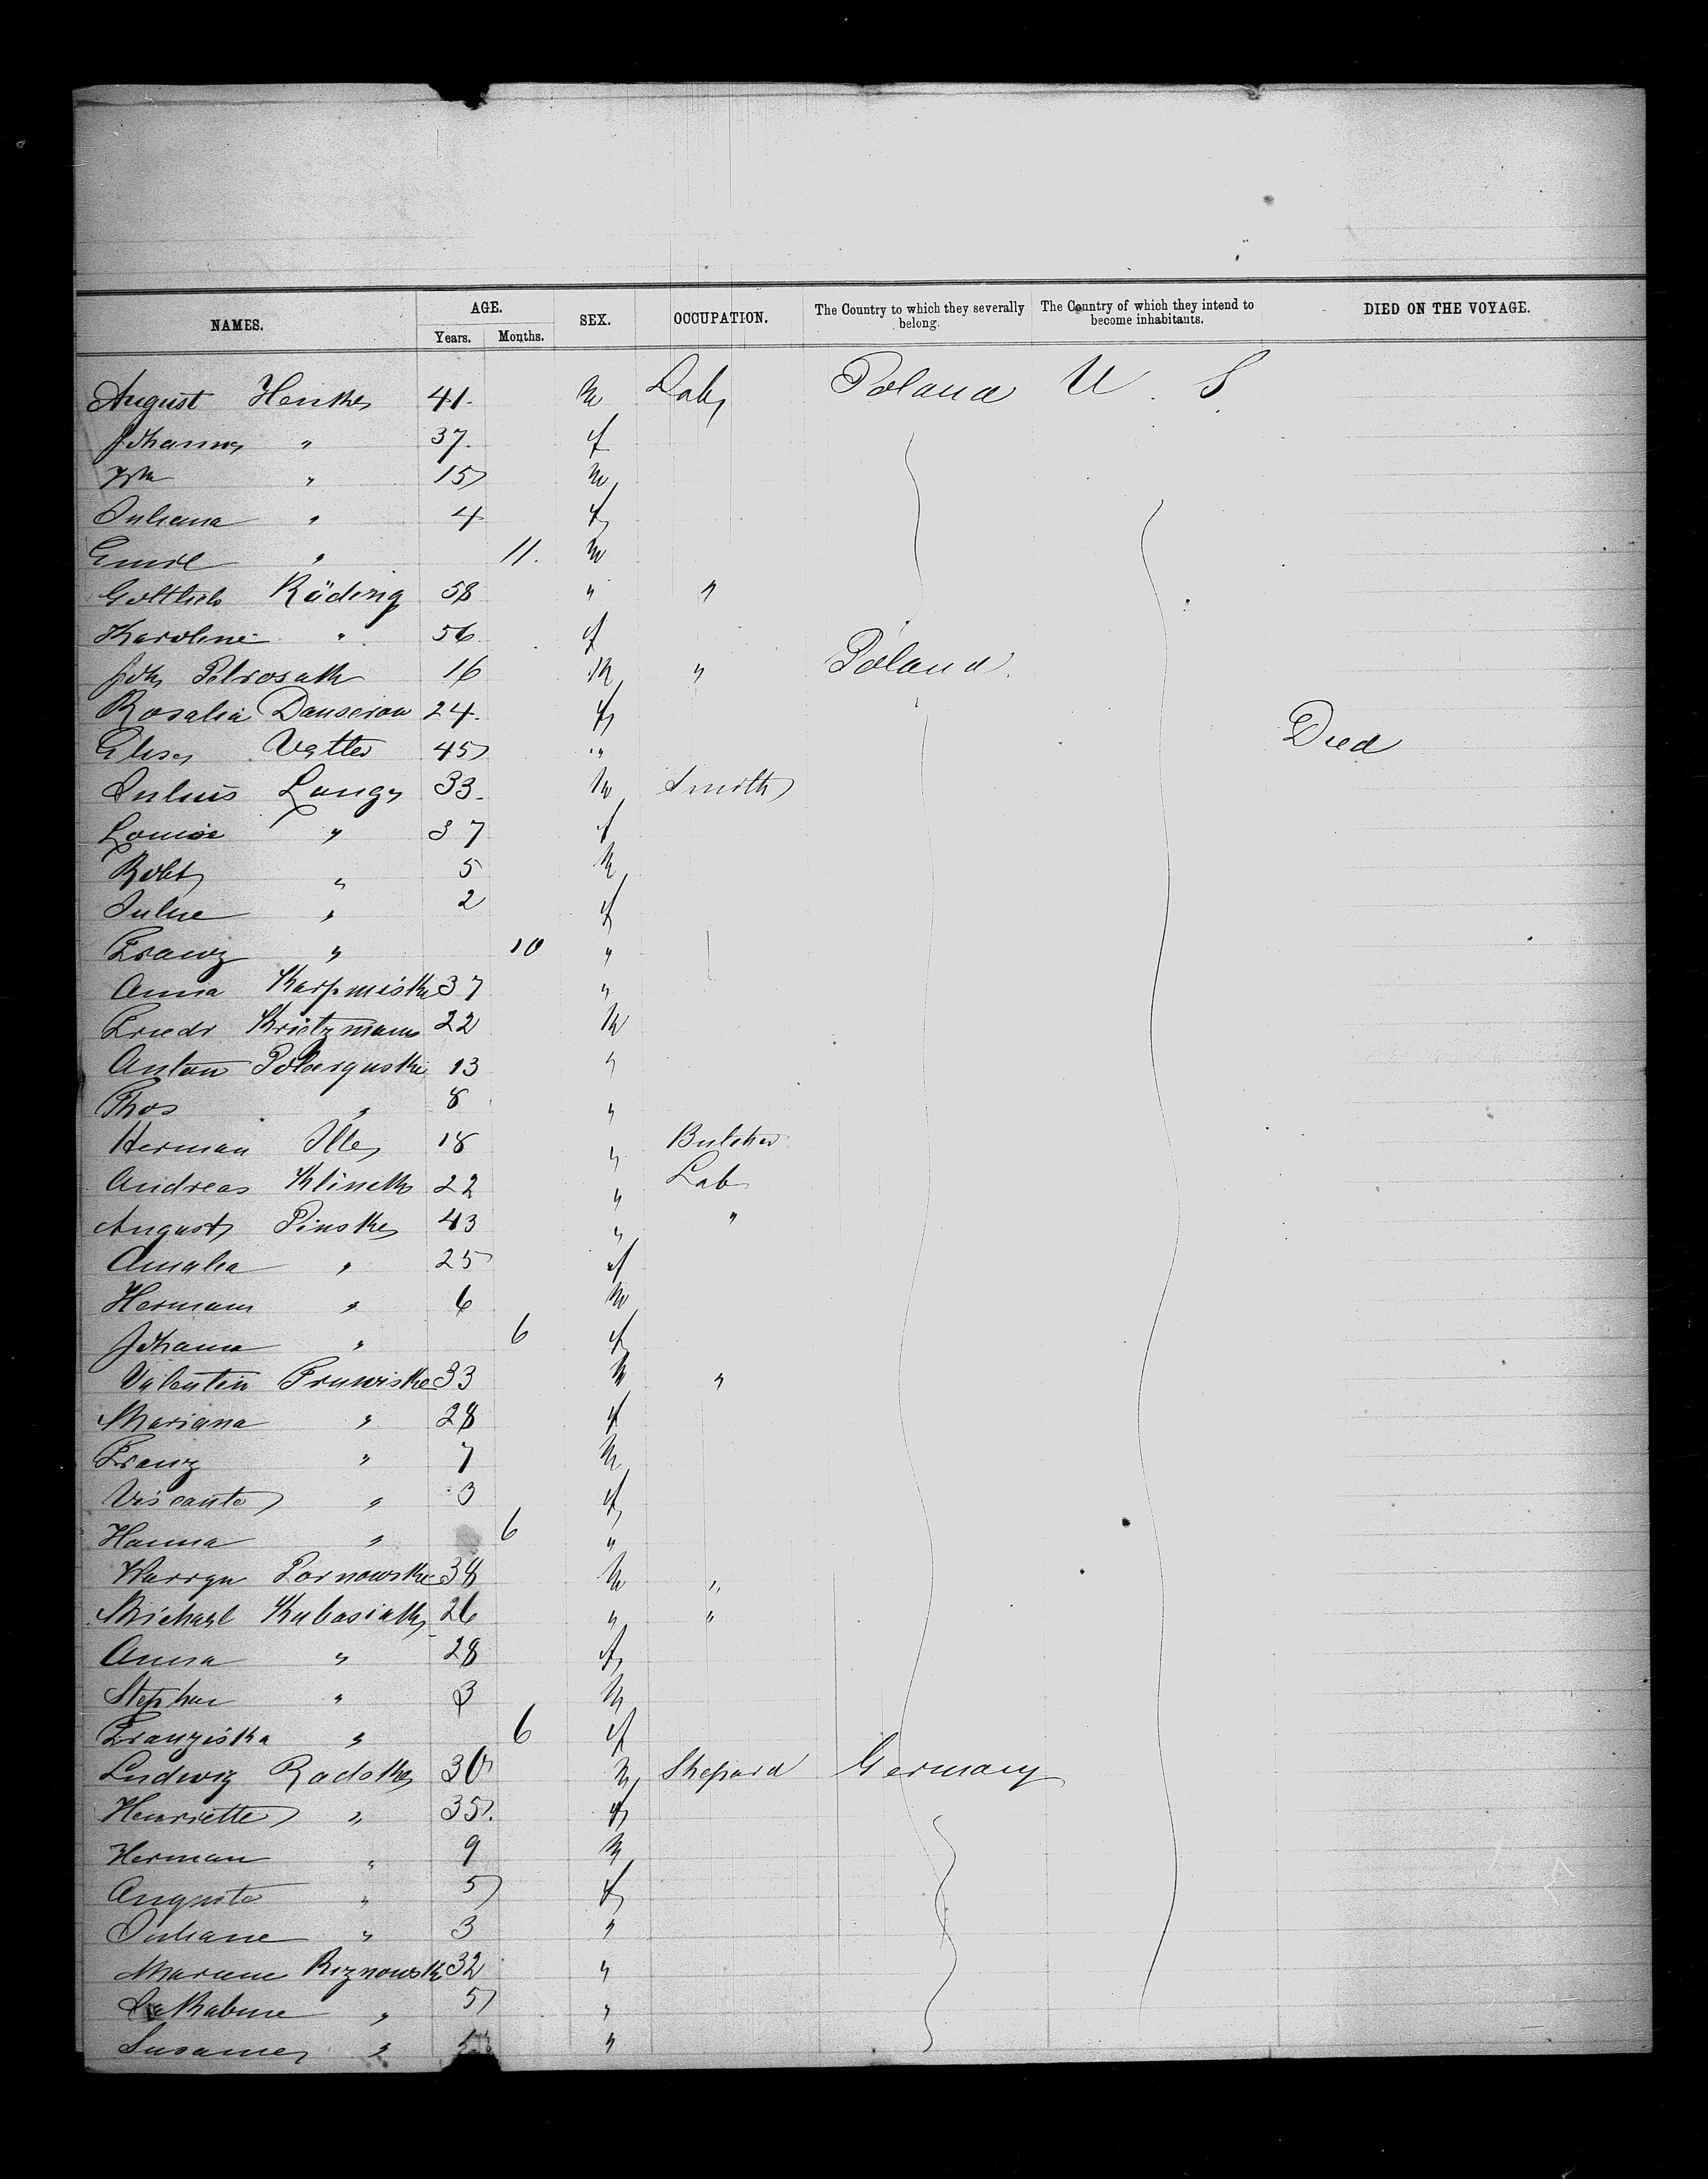 NAMES. AGE. SEX. OCCUPATION. The Country to which they severally belong. The Country of which they intend to become inhabitants. DIED ON THE VOYAGE.
Years. Months.
August Henke 41 M Lab Poland U. S.
Johanna " 37 f
Wm " 15 M
Juliana " 4 f
Emil " 11 M
Gottlieb Räding 58 " "
Karoline " 56 f
Joh Petrosak 16 M " Poland
Rosalia 24 f
Elise Vatter 45 " Died
Julius Lange 33 M Smith
Louise " 37 f
Robt " 5 M
Julie " 2 f
Franz " 10 "
Anna Karpmiske 37 "
Friedr Krietzmann 22 M
Anton 13 "
Thos " 8 "
Herman Ille 18 " Butcher
Andreas Klinek 22 " Lab
August Pinske 43 " "
Amalia " 25 f
Hermann " 6 M
Johanna " 6 f
Valentin 33 M "
Mariana " 28 f
Franz " 7 M
" 3 f
Hanna " 6 "
Pornowske 38 M "
Michael Kubasiak 26 " "
Anna " 28 f
Stephan " 3 M
Franziska " 6 f
Ludwig Radoke 30 M Shepard Germany
Henriette " 35 f
Herman " 9 M
Auguste " 5 f
Juliane " 3 "
Riznowsk 32 "
" 5 "
Susanne " "